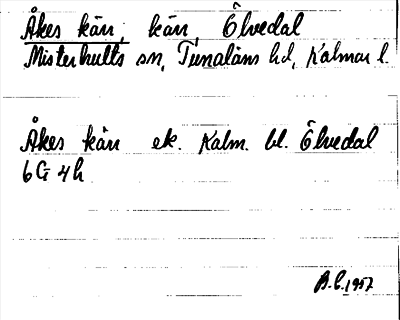 Åkes kärr, kärr, Älvedal
Misterhults sn, Tunaläns hd, Kalmar l.
Åkes kärr ek. Kalm. bl. Älvedal
6G 4h
1957